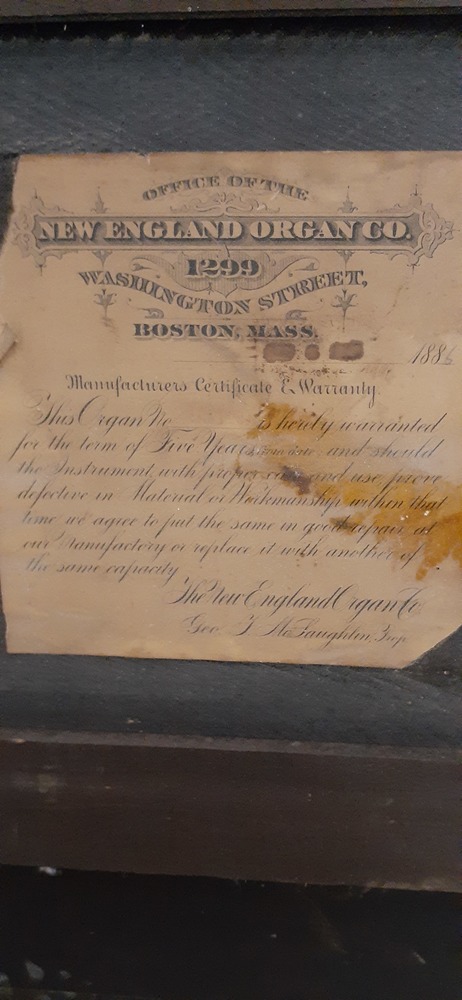 OFFICE OF THE
NEW ENGLAND ORGAN CO.
1299
WASHINGTON STREET,
BOSTON, MASS.
188
Manufacturers Certificate & Warranty.
This Organ No is hereby warranted
for the term of Five Years from date, and should
the Instrument, with proper care and use, prove
defective in Material or Workmanship, within that
time we agree to put the same in good repair at
our Manufactory or replace it with another of
the same capacity
The New England Organ Co.
Geo. T. McLaughlin, Prop.